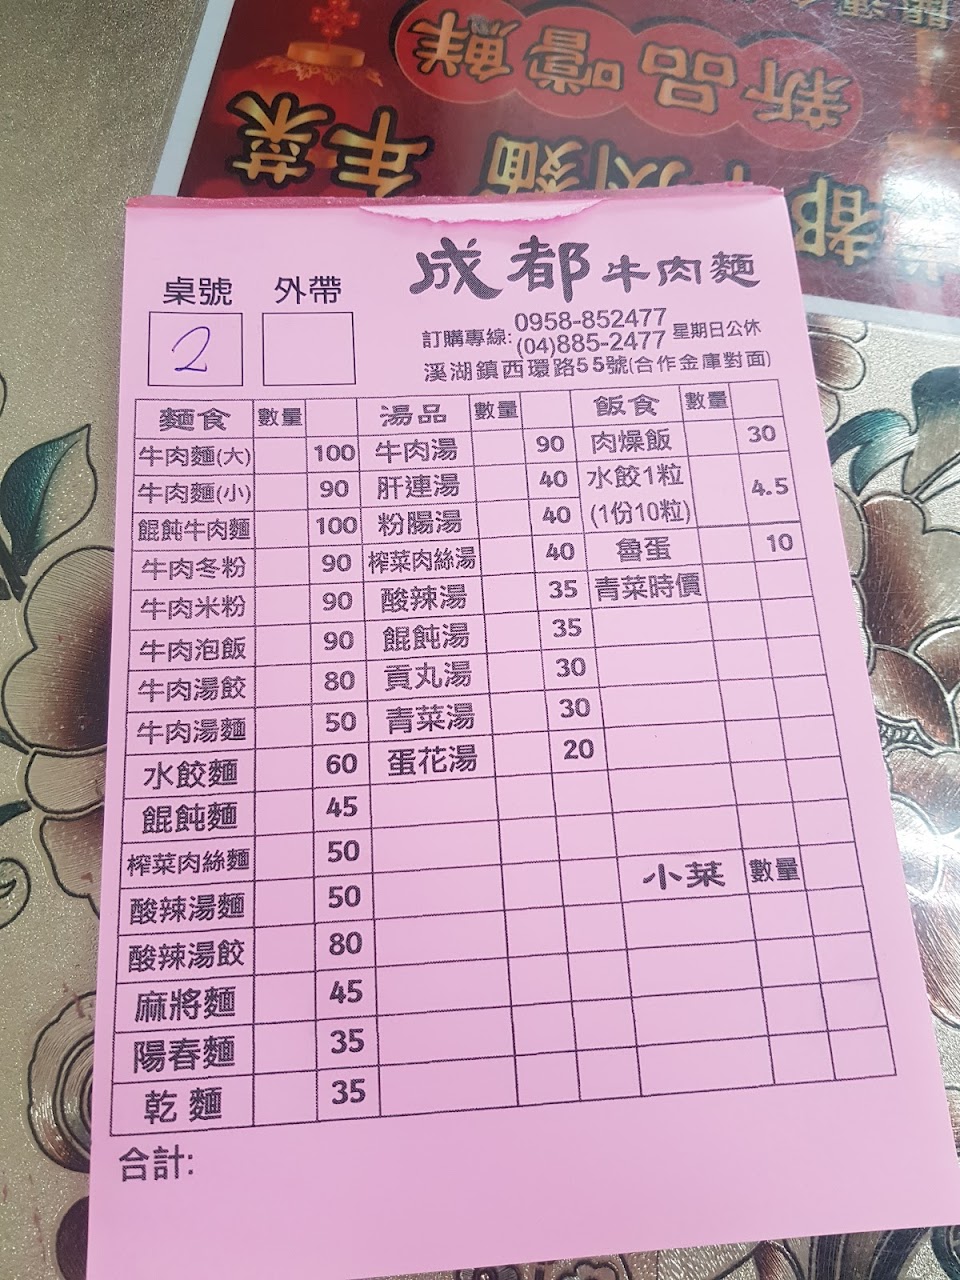 新品嚐鮮
年菜
成都牛肉麵
桌號 外帶
2
訂購專線: 0958-852477
(04)885-2477 星期日公休
溪湖鎮西環路55號(合作金庫對面)
麵食 數量 湯品 數量 飯食 數量
牛肉麵(大) 100 牛肉湯 90 肉燥飯 30
牛肉麵(小) 90 肝連湯 40 水餃1粒 4.5
餛飩牛肉麵 100 粉腸湯 40 (1份10粒)
牛肉冬粉 90 榨菜肉絲湯 40 魯蛋 10
牛肉米粉 90 酸辣湯 35 青菜時價
牛肉泡飯 90 餛飩湯 35
牛肉湯餃 80 貢丸湯 30
牛肉湯麵 50 青菜湯 30
水餃麵 60 蛋花湯 20
餛飩麵 45
榨菜肉絲麵 50 小菜 數量
酸辣湯麵 50
酸辣湯餃 80
麻將麵 45
陽春麵 35
乾麵 35
合計: